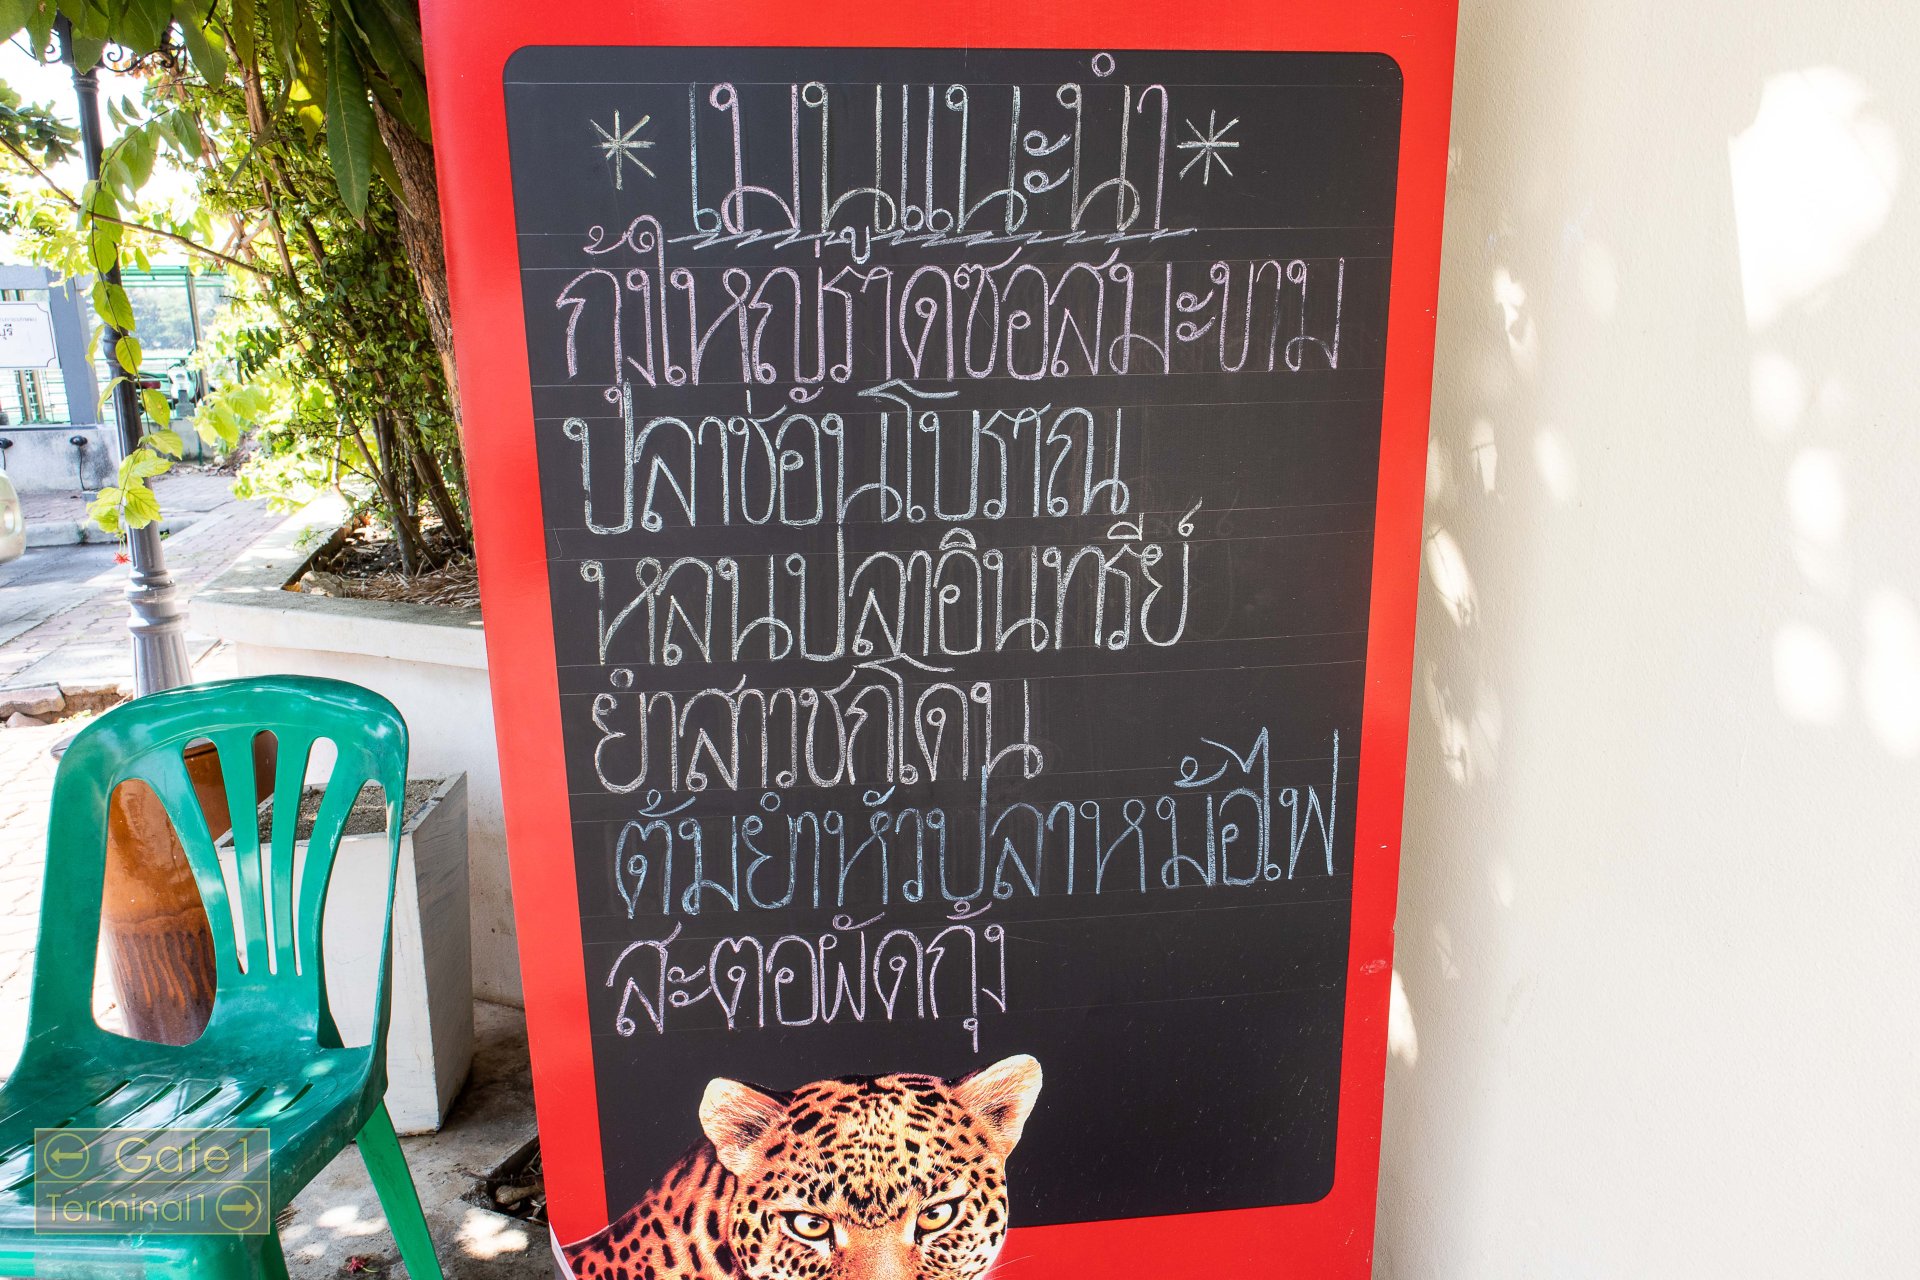 *เมนูแนะนำ*
กุ้งใหญ่ราดซอสมะขาม
ปลาช่อนโบราณ
หลนปลาอินทรีย์
ยำสาวชกโดน
ต้มยำหัวปลาหม้อไฟ
สะตอผัดกุ้ง
Gate1
Terminal1